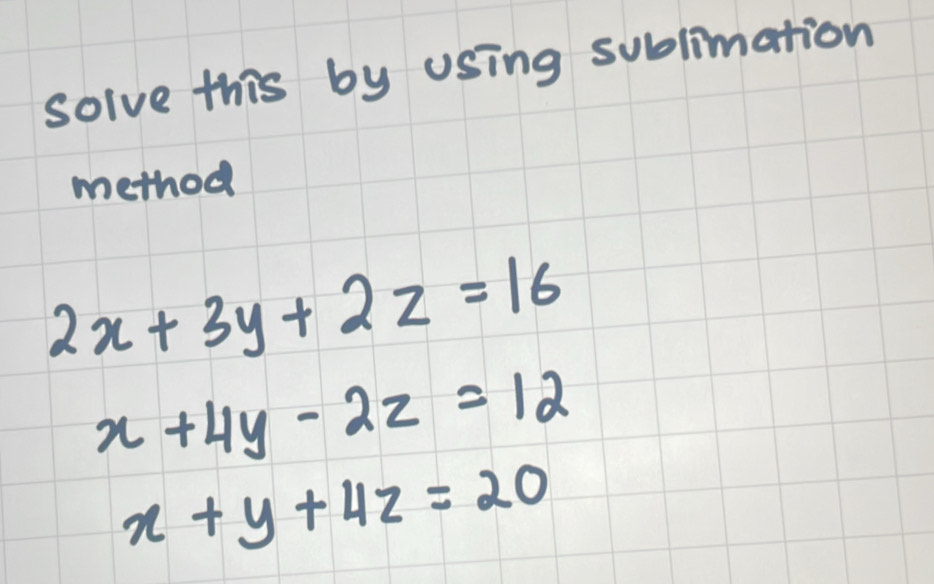 solve this by using sublimation
method
2x + 3y + 2z = 16
x + 4y - 2z = 12
x + y + 4z = 20